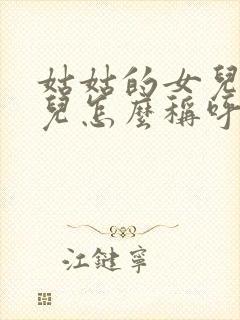 姑姑的女兒
兒怎麼稱呼
江鍵寧